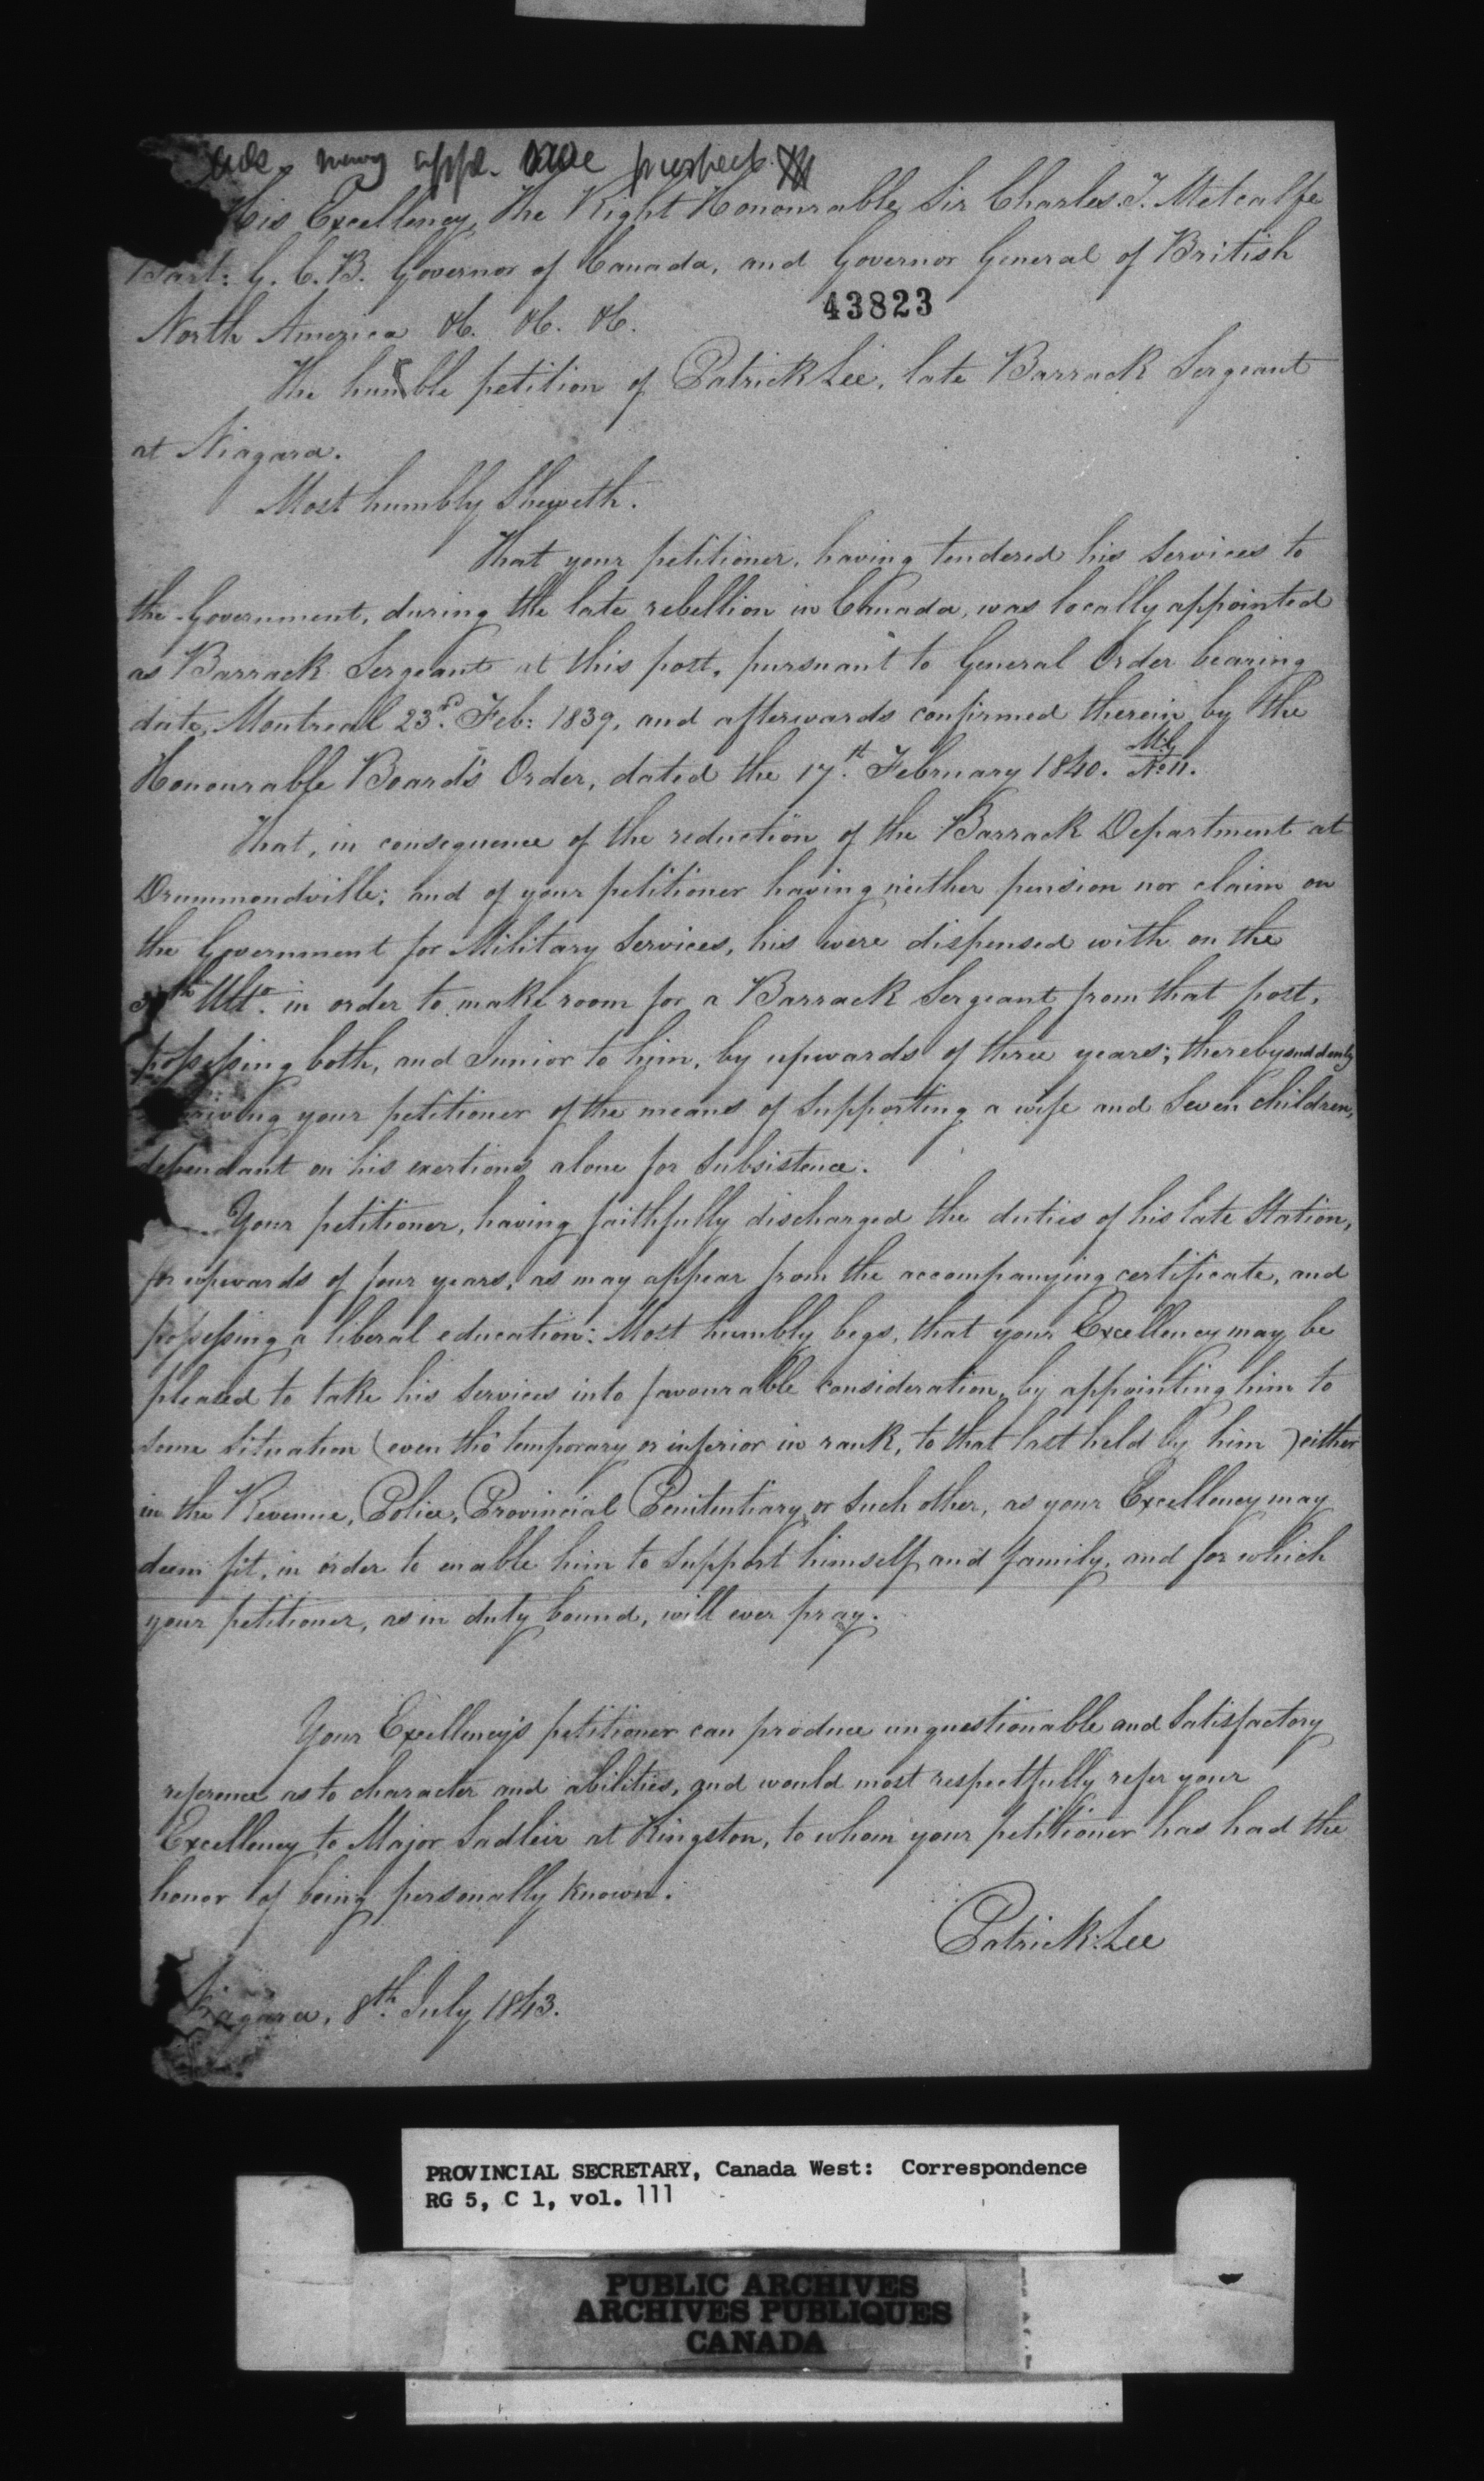 many appl. prospect
His Excellency, The Right Honourable, Sir Charles. T. Metcalfe
Bart: G. C. B. Governor of Canada, and Governor General of British
North America &c. &c. &c.
43823
The humble petition of Patrick Lee, late Barrack Sergeant
at Niagara.
Most humbly Sheweth.
That your petitioner, having tendered his services to
the Government, during the late rebellion in Canada, was locally appointed
as Barrack Sergeant at this post, pursuant to General Order bearing
date, Montreal 23rd. Feb: 1839, and afterwards confirmed therein by the
Honourable Board's Order, dated the 17th. February 1840. No. 11.
That, in consequence of the reduction of the Barrack Department at
Drummondville; and of your petitioner having neither pension nor claim on
the Government for Military Services, his were dispensed with on the
Ulto. in order to make room for a Barrack Sergeant from that post,
possessing both, and Junior to him, by upwards of three years; thereby suddenly
riving your petitioner of the means of supporting a wife and seven children,
dependant on his exertions alone for subsistence.
Your petitioner, having faithfully discharged the duties of his late Station,
for upwards of four years, as may appear from the accompanying certificate, and
possessing a liberal education: Most humbly begs, that your Excellency may be
pleased to take his services into favourable consideration, by appointing him to
some situation (even tho' temporary or inferior in rank, to that last held by him) either
in the Revenue, Police, Provincial Penitentiary or such other, as your Excellency may
deem fit, in order to enable him to support himself and family, and for which
your petitioner, as in duty bound, will ever pray.
Your Excellency's petitioner can produce unquestionable and satisfactory
reference as to character and abilities, and would most respectfully refer your
Excellency to Major Sadleir at Kingston, to whom your petitioner has had the
honor of being personally known.
Patrick Lee
Niagara, 8th. July 1843.
PROVINCIAL SECRETARY, Canada West: Correspondence
RG 5, C 1, vol. 111
PUBLIC ARCHIVES
ARCHIVES PUBLIQUES
CANADA